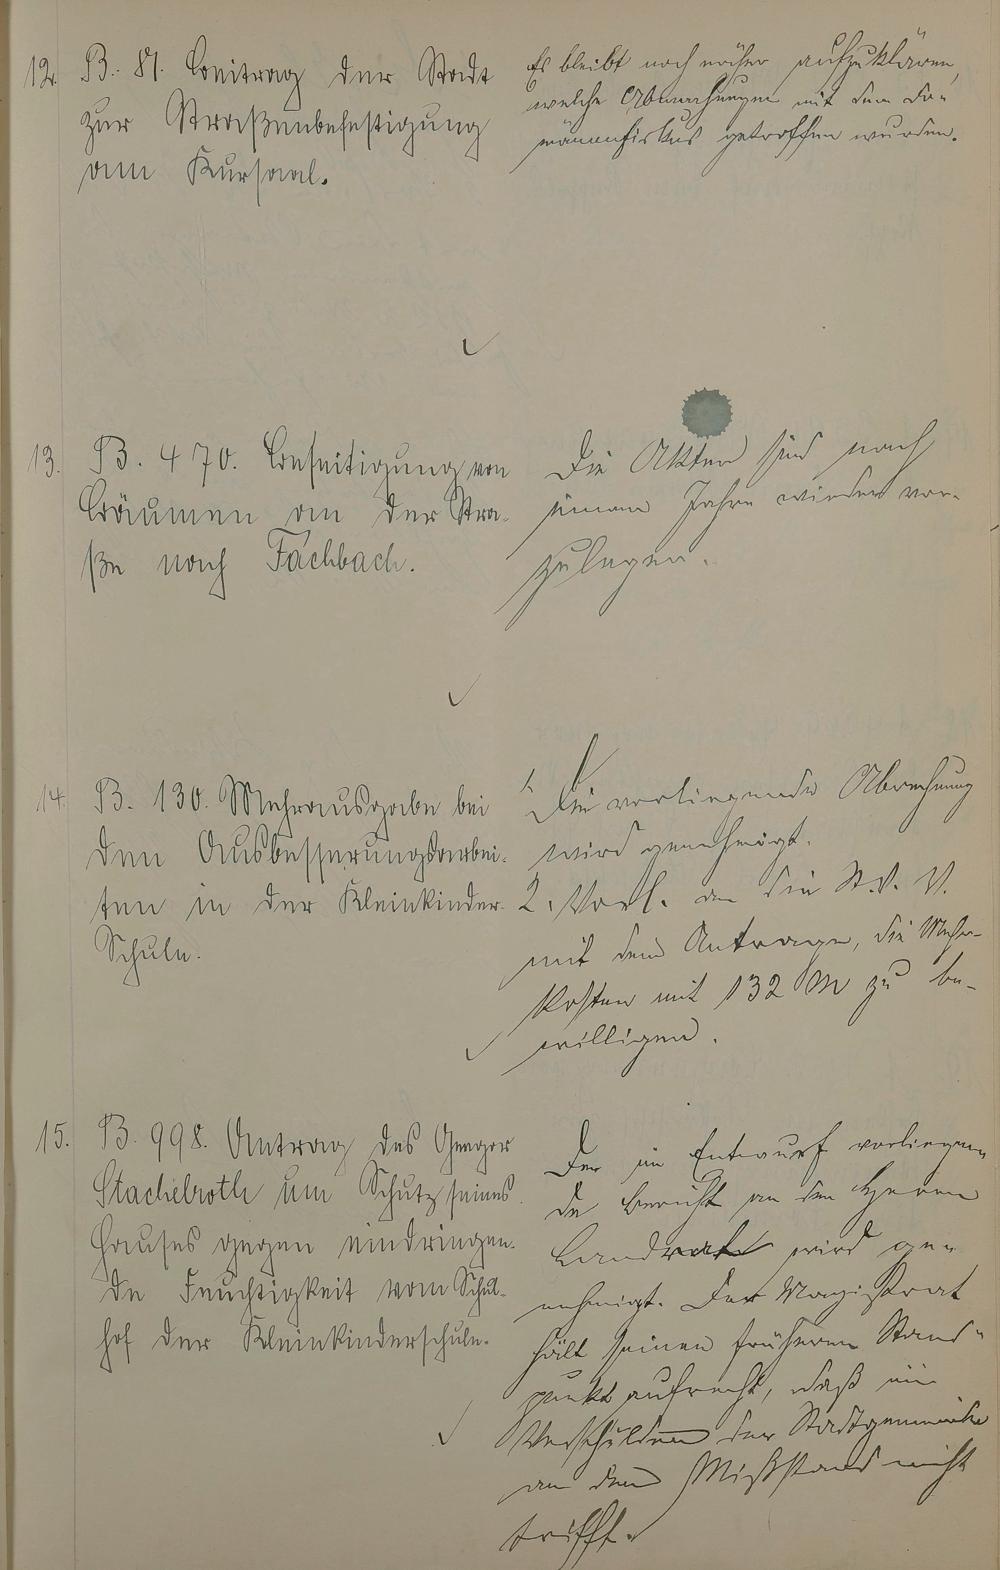 12. B. 81. Beitrag der Stadt
zur Straßenbefestigung
am Kursaal.
Es bleibt noch näher aufzuklären,
welche Abmachungen mit dem Do-
mänenfiskus getroffen wurden.
13. B. 470. Beseitigung von
Bäumen an der Stra-
ße nach Fachbach.
Die Akten sind nach
einem Jahre wieder vor-
zulegen.
14. B. 130. Mehrausgabe bei
den Ausbesserungsarbei-
ten in der Kleinkinder-
Schule.
1. Die vorliegende Abrechnung
wird genehmigt.
2. Vorl. an die St.V.V.
mit dem Antrage, die Mehr-
kosten mit 132 M zu be-
willigen.
15. B. 998. Antrag des Gregor
Stachelroth um Schutz seines
Hauses gegen eindringen-
de Feuchtigkeit vom Schul-
hof der Kleinkinderschule.
Der im Entwurf vorliegen-
de Bericht an den Herrn
Landrat wird ge-
nehmigt. Der Magistrat
hält seinen früheren Stand-
punkt aufrecht, daß ein
Verschulden der Stadtgemeinde
an dem Mißstand nicht
trifft.